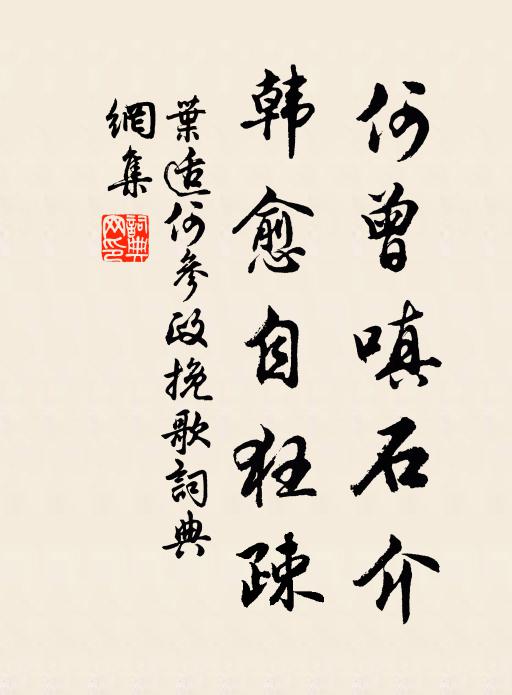 何曾嗔石介
韓愈自狂疎
葉適何參政挽歌詞典
網集
詞典網印